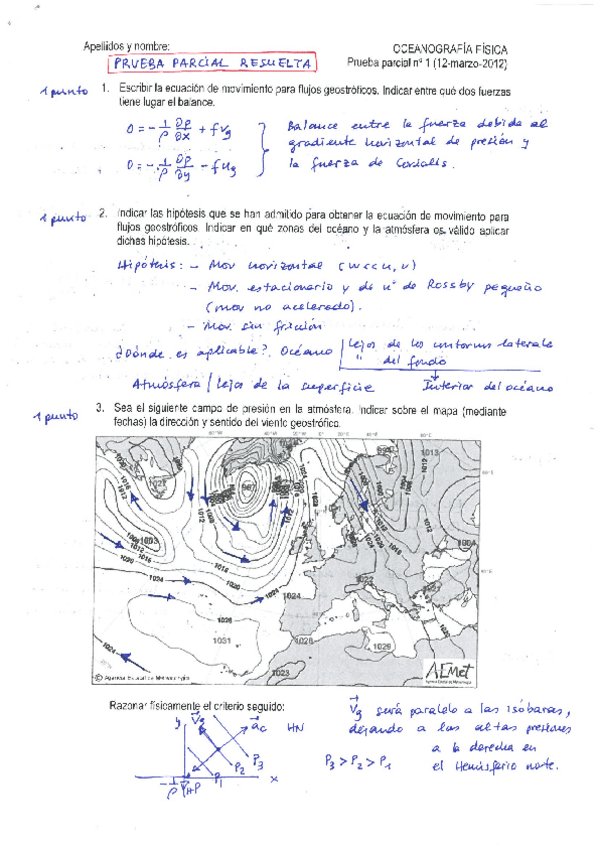 Apellidos y nombre:
OCEANOGRAFÍA FÍSICA
PRUEBA PARCIAL RESUELTA
Prueba parcial nº 1 (12-marzo-2012)
1 punto
1. Escribir la ecuación de movimiento para flujos geostróficos. Indicar entre qué dos fuerzas
tiene lugar el balance.
0 = - 1/ρ ∂p/∂x + f vg
0 = - 1/ρ ∂p/∂y - f ug
Balance entre la fuerza debida al
gradiente horizontal de presión y
la fuerza de Coriolis.
1 punto
2. Indicar las hipótesis que se han admitido para obtener la ecuación de movimiento para
flujos geostróficos. Indicar en qué zonas del océano y la atmósfera es válido aplicar
dichas hipótesis.
Hipótesis: - Mov horizontal (w<<u,v)
- Mov. estacionario y de nº de Rossby pequeño
(mov no acelerado).
- Mov. sin fricción
¿Dónde es aplicable? Océano | lejos de los contornos laterales
" del fondo
Atmósfera / lejos de la superficie
Interior del océano
1 punto
3. Sea el siguiente campo de presión en la atmósfera. Indicar sobre el mapa (mediante
flechas) la dirección y sentido del viento geostrófico.
1003
1031
1028
1029
1023
1022
1024
1026
© Agencia Estatal de Meteorología
AEMet
Razonar físicamente el criterio seguido:
y
Vg
ac
HN
P1
P2
P3
x
-1/ρ ∇HP
Vg será paralelo a las isóbaras,
dejando a las altas presiones
a la derecha en
el Hemisferio norte.
P3 > P2 > P1